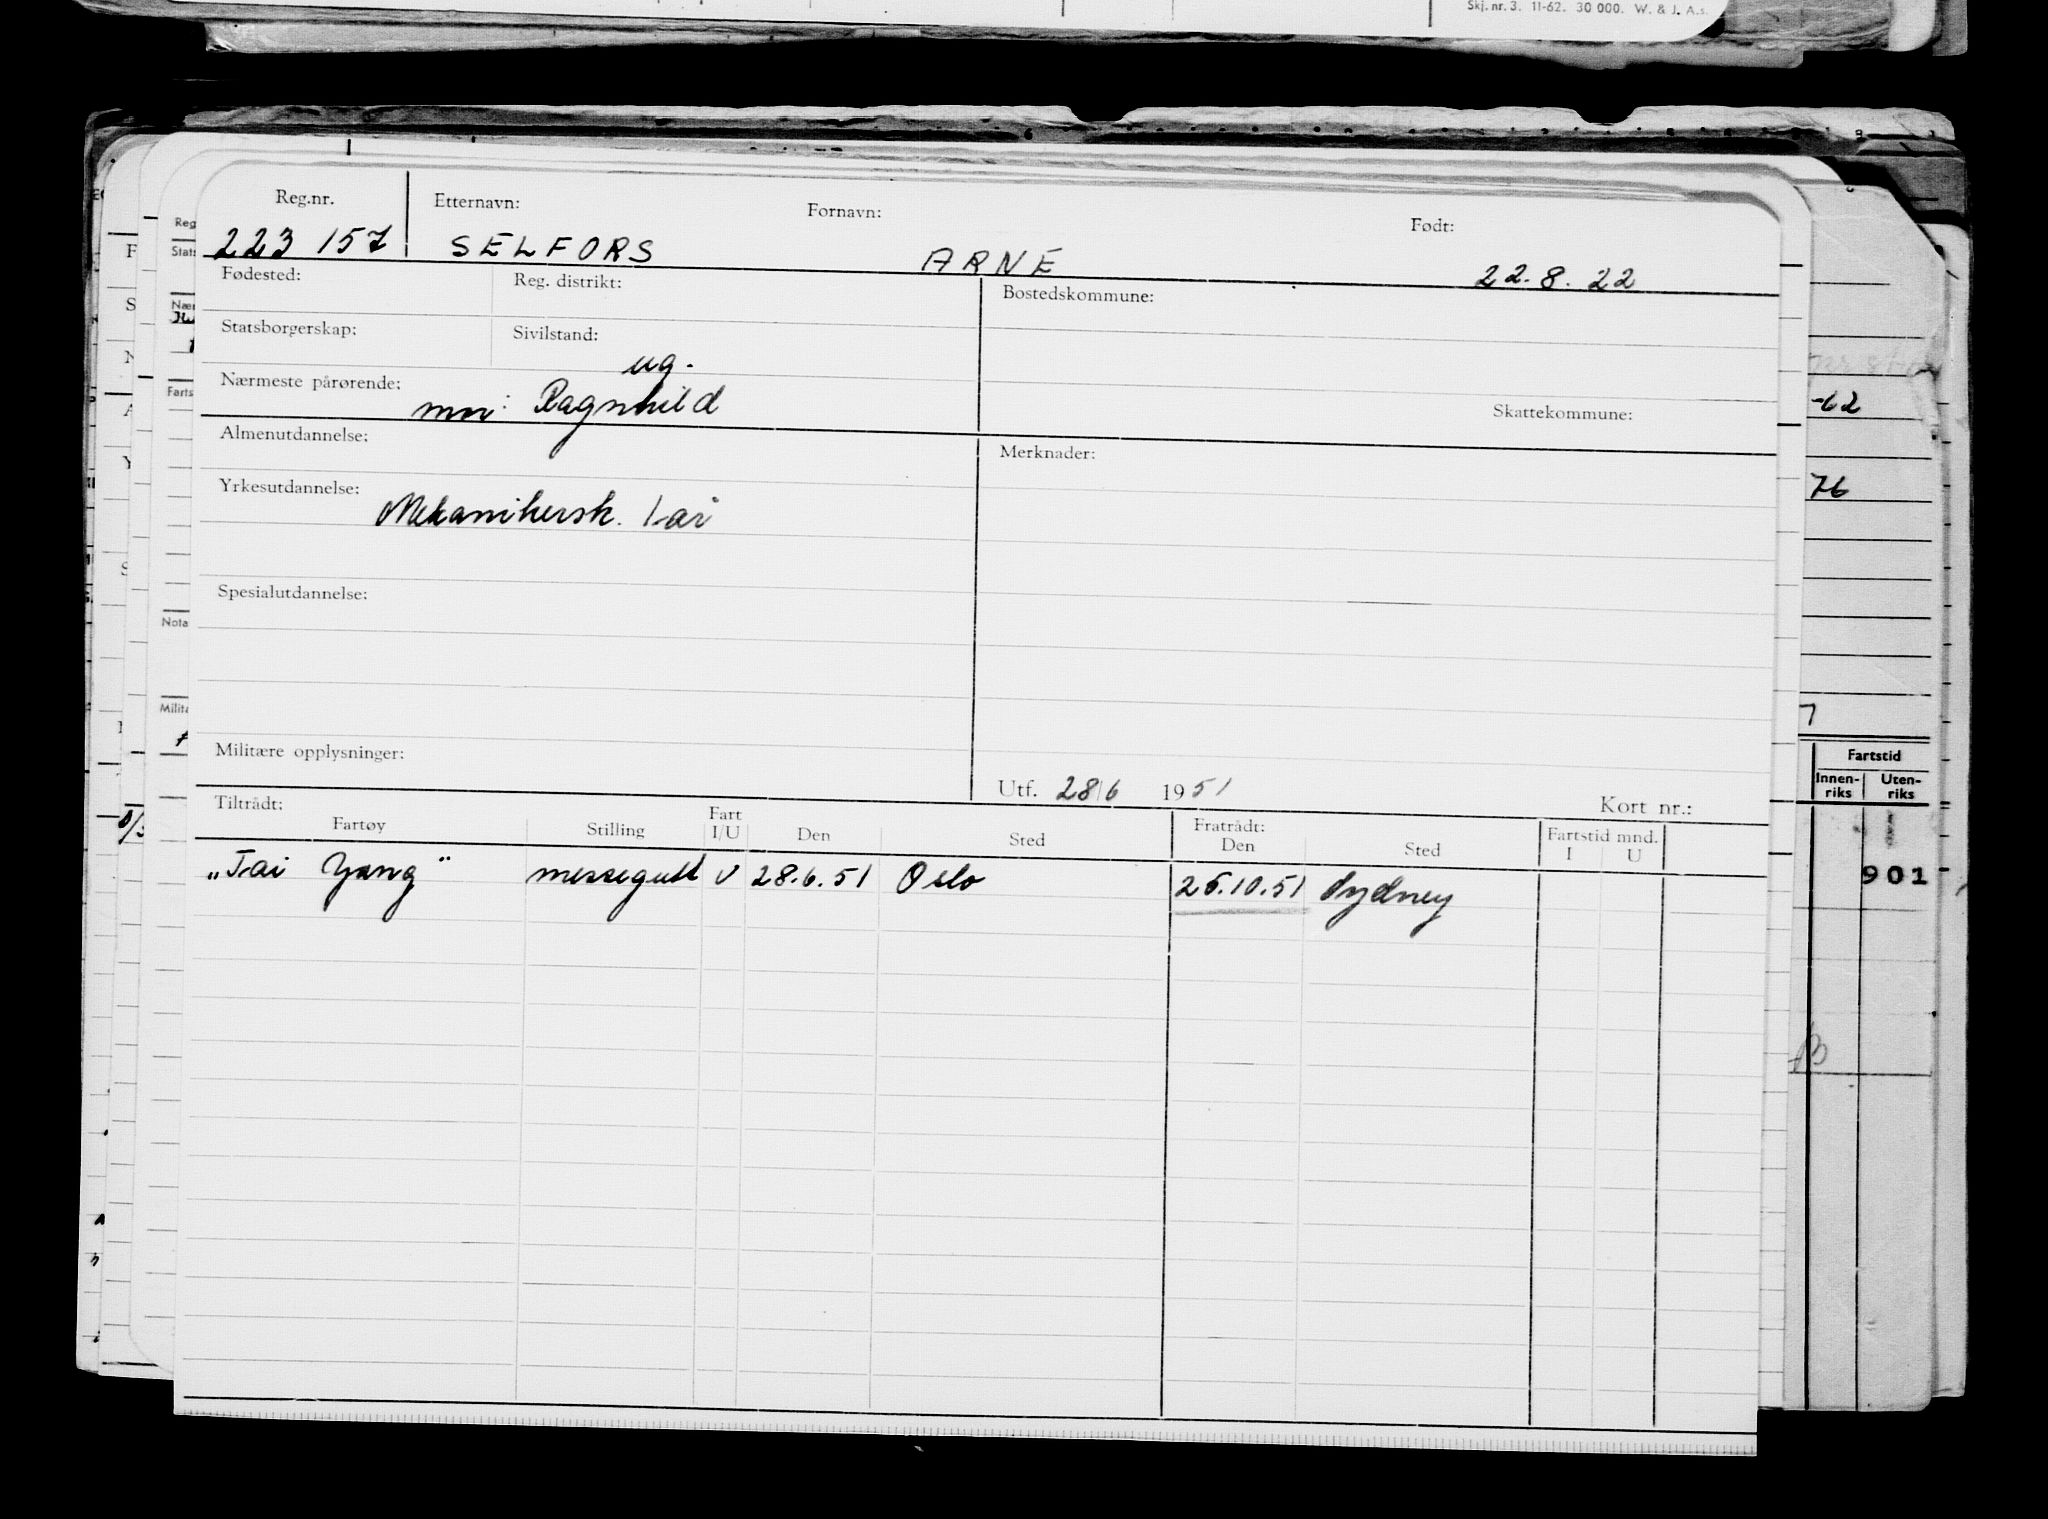 Skj. nr. 3. 11-62. 30 000. W. & J. A.s.
Reg.nr. Etternavn: Fornavn: Født:
223 157 SELFORS ARNE 22.8.22
Fødested: Reg. distrikt: Bostedskommune:
Statsborgerskap: Sivilstand:
ug.
Nærmeste pårørende: Skattekommune:
mor: Ragnhild
Almenutdannelse: Merknader:
Yrkesutdannelse:
Mekanikersk. 1 år
Spesialutdannelse:
Militære opplysninger:
Utf. 28/6 1951 Kort nr.:
Tiltrådt: Fratrådt: Fartstid mnd.
Fartøy Stilling Fart I/U Den Sted Den Sted I U
„Tai Yang" messegutt U 28.6.51 Oslo 26.10.51 Sydney
-62
76
Fartstid
Innen-riks Uten-riks
901